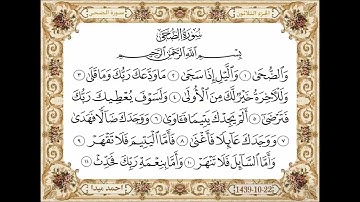 الجزء الثلاثون
سورة الضحى
سُورَةُ الضُّحَىٰ
بِسْمِ اللَّهِ الرَّحْمَٰنِ الرَّحِيمِ
وَالضُّحَىٰ ١ وَالَّيْلِ إِذَا سَجَىٰ ٢ مَا وَدَّعَكَ رَبُّكَ وَمَا قَلَىٰ ٣
وَلَلْآخِرَةُ خَيْرٌ لَّكَ مِنَ الْأُولَىٰ ٤ وَلَسَوْفَ يُعْطِيكَ رَبُّكَ
فَتَرْضَىٰ ٥ أَلَمْ يَجِدْكَ يَتِيمًا فَآوَىٰ ٦ وَوَجَدَكَ ضَالًّا فَهَدَىٰ
٧ وَوَجَدَكَ عَائِلًا فَأَغْنَىٰ ٨ فَأَمَّا الْيَتِيمَ فَلَا تَقْهَرْ ٩
وَأَمَّا السَّائِلَ فَلَا تَنْهَرْ ١٠ وَأَمَّا بِنِعْمَةِ رَبِّكَ فَحَدِّثْ ١١
احمد عيدا
1439-10-22